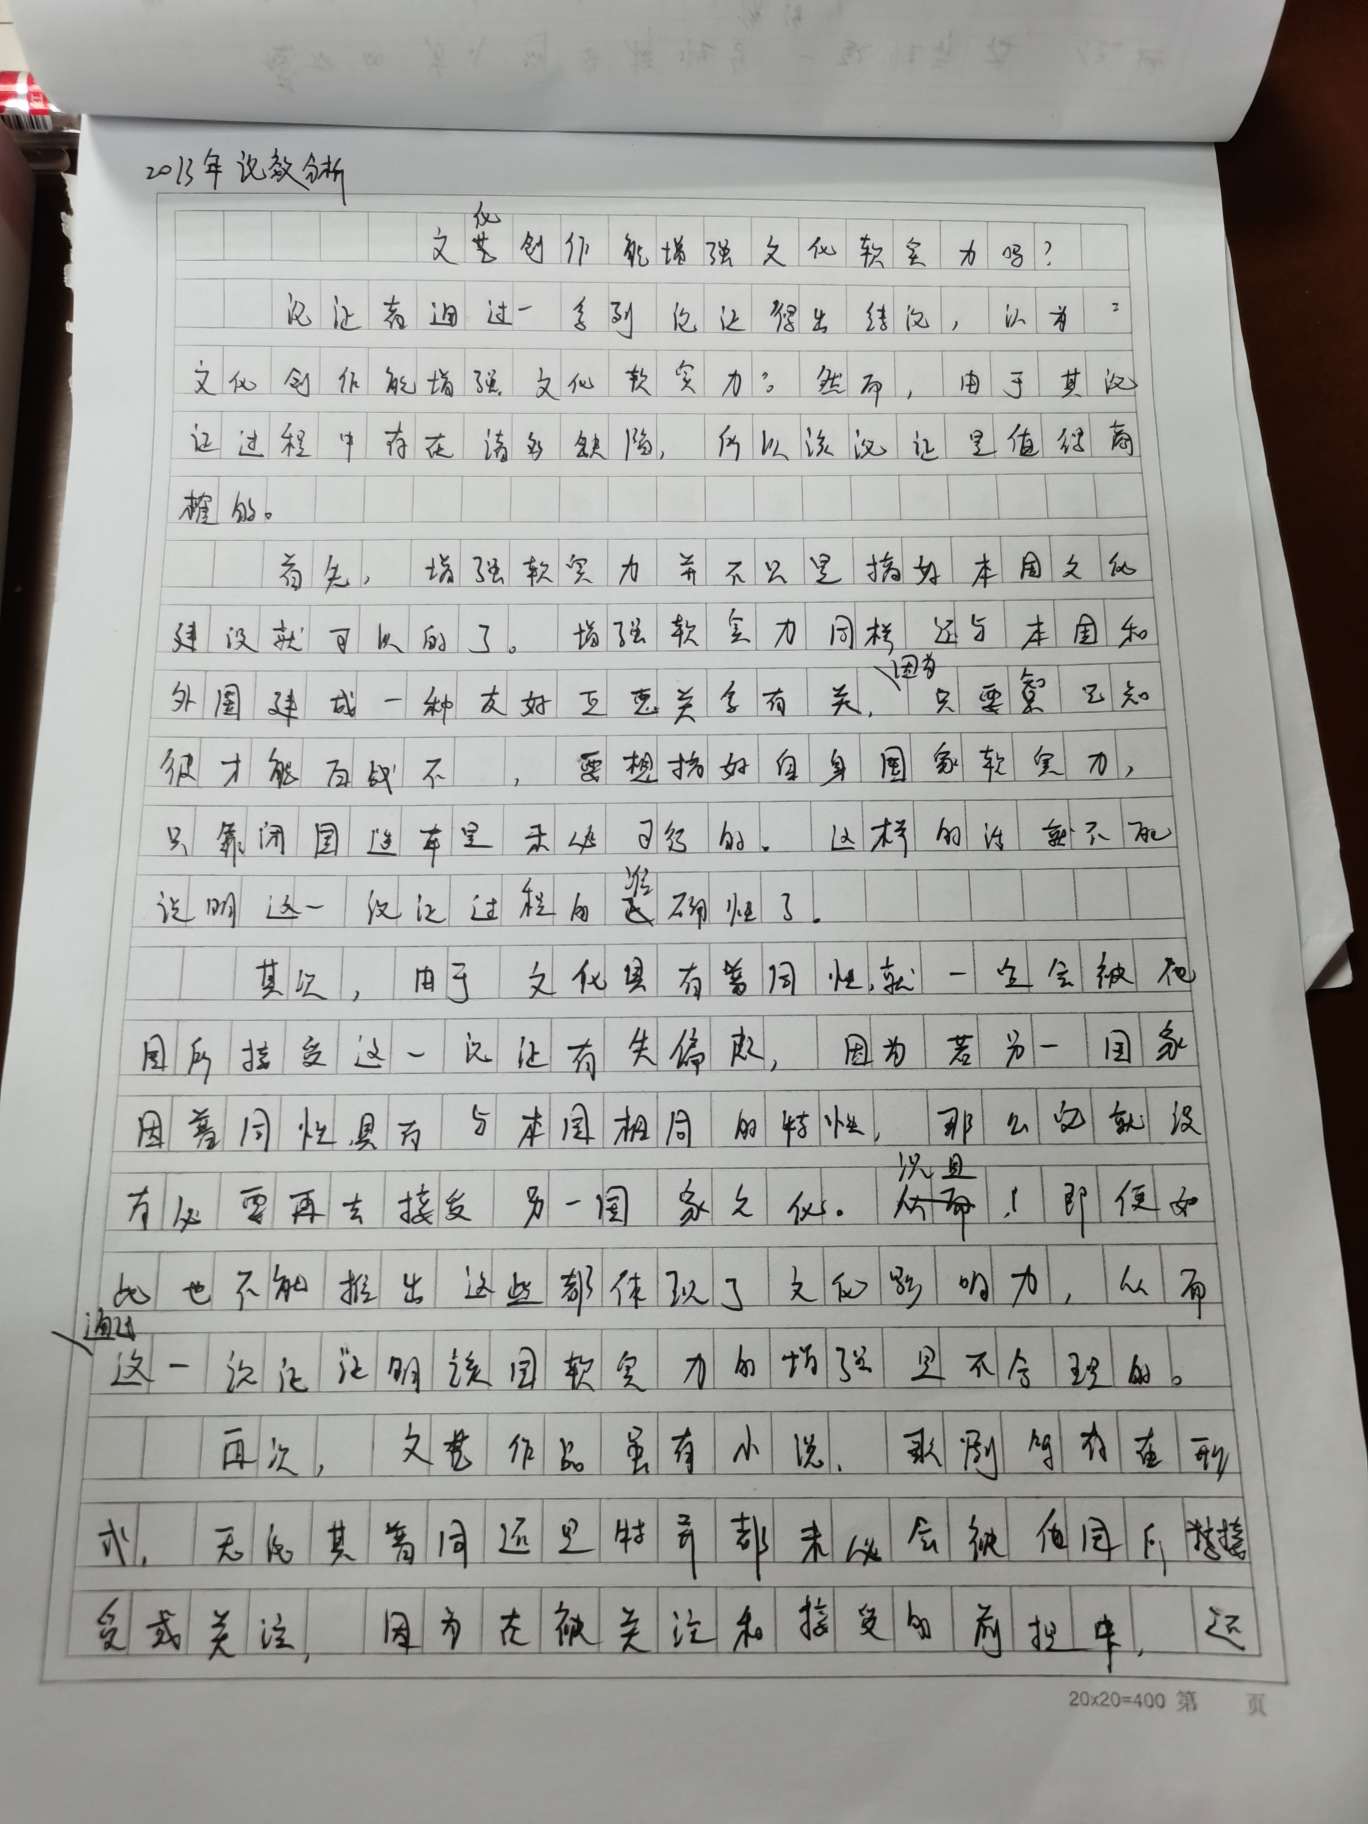 2013年论效分析
文化创作能增强文化软实力吗？
论证者通过一系列论证得出结论，认为：
文化创作能增强文化软实力。然而，由于其论
证过程中存在诸多缺陷，所以该论证是值得商
榷的。
首先，增强软实力并不只是搞好本国文化
建设就可以的了。增强软实力同样还与本国和
外国建成一种友好互惠关系有关，因为只要知己知
彼才能百战不，要想搞好自身国家软实力，
只靠闭国造车是未必可行的。这样的话就不能
说明这一论证过程的准确性了。
其次，由于文化具有普同性，就一定会被他
国所接受这一论证有失偏颇，因为若另一国家
因普同性具有与本国相同的特性，那么它就没
有必要再去接受另一国家文化。况且！即便如
此也不能推出这些都体现了文化影响力，从而
通过这一论证证明该国软实力的增强是不合理的。
再次，文艺作品虽有小说、歌剧等存在形
式，无论其普同还是特异都未必会被他国所接
受或关注，因为在被关注和接受的前提中，还
20x20=400 第 页